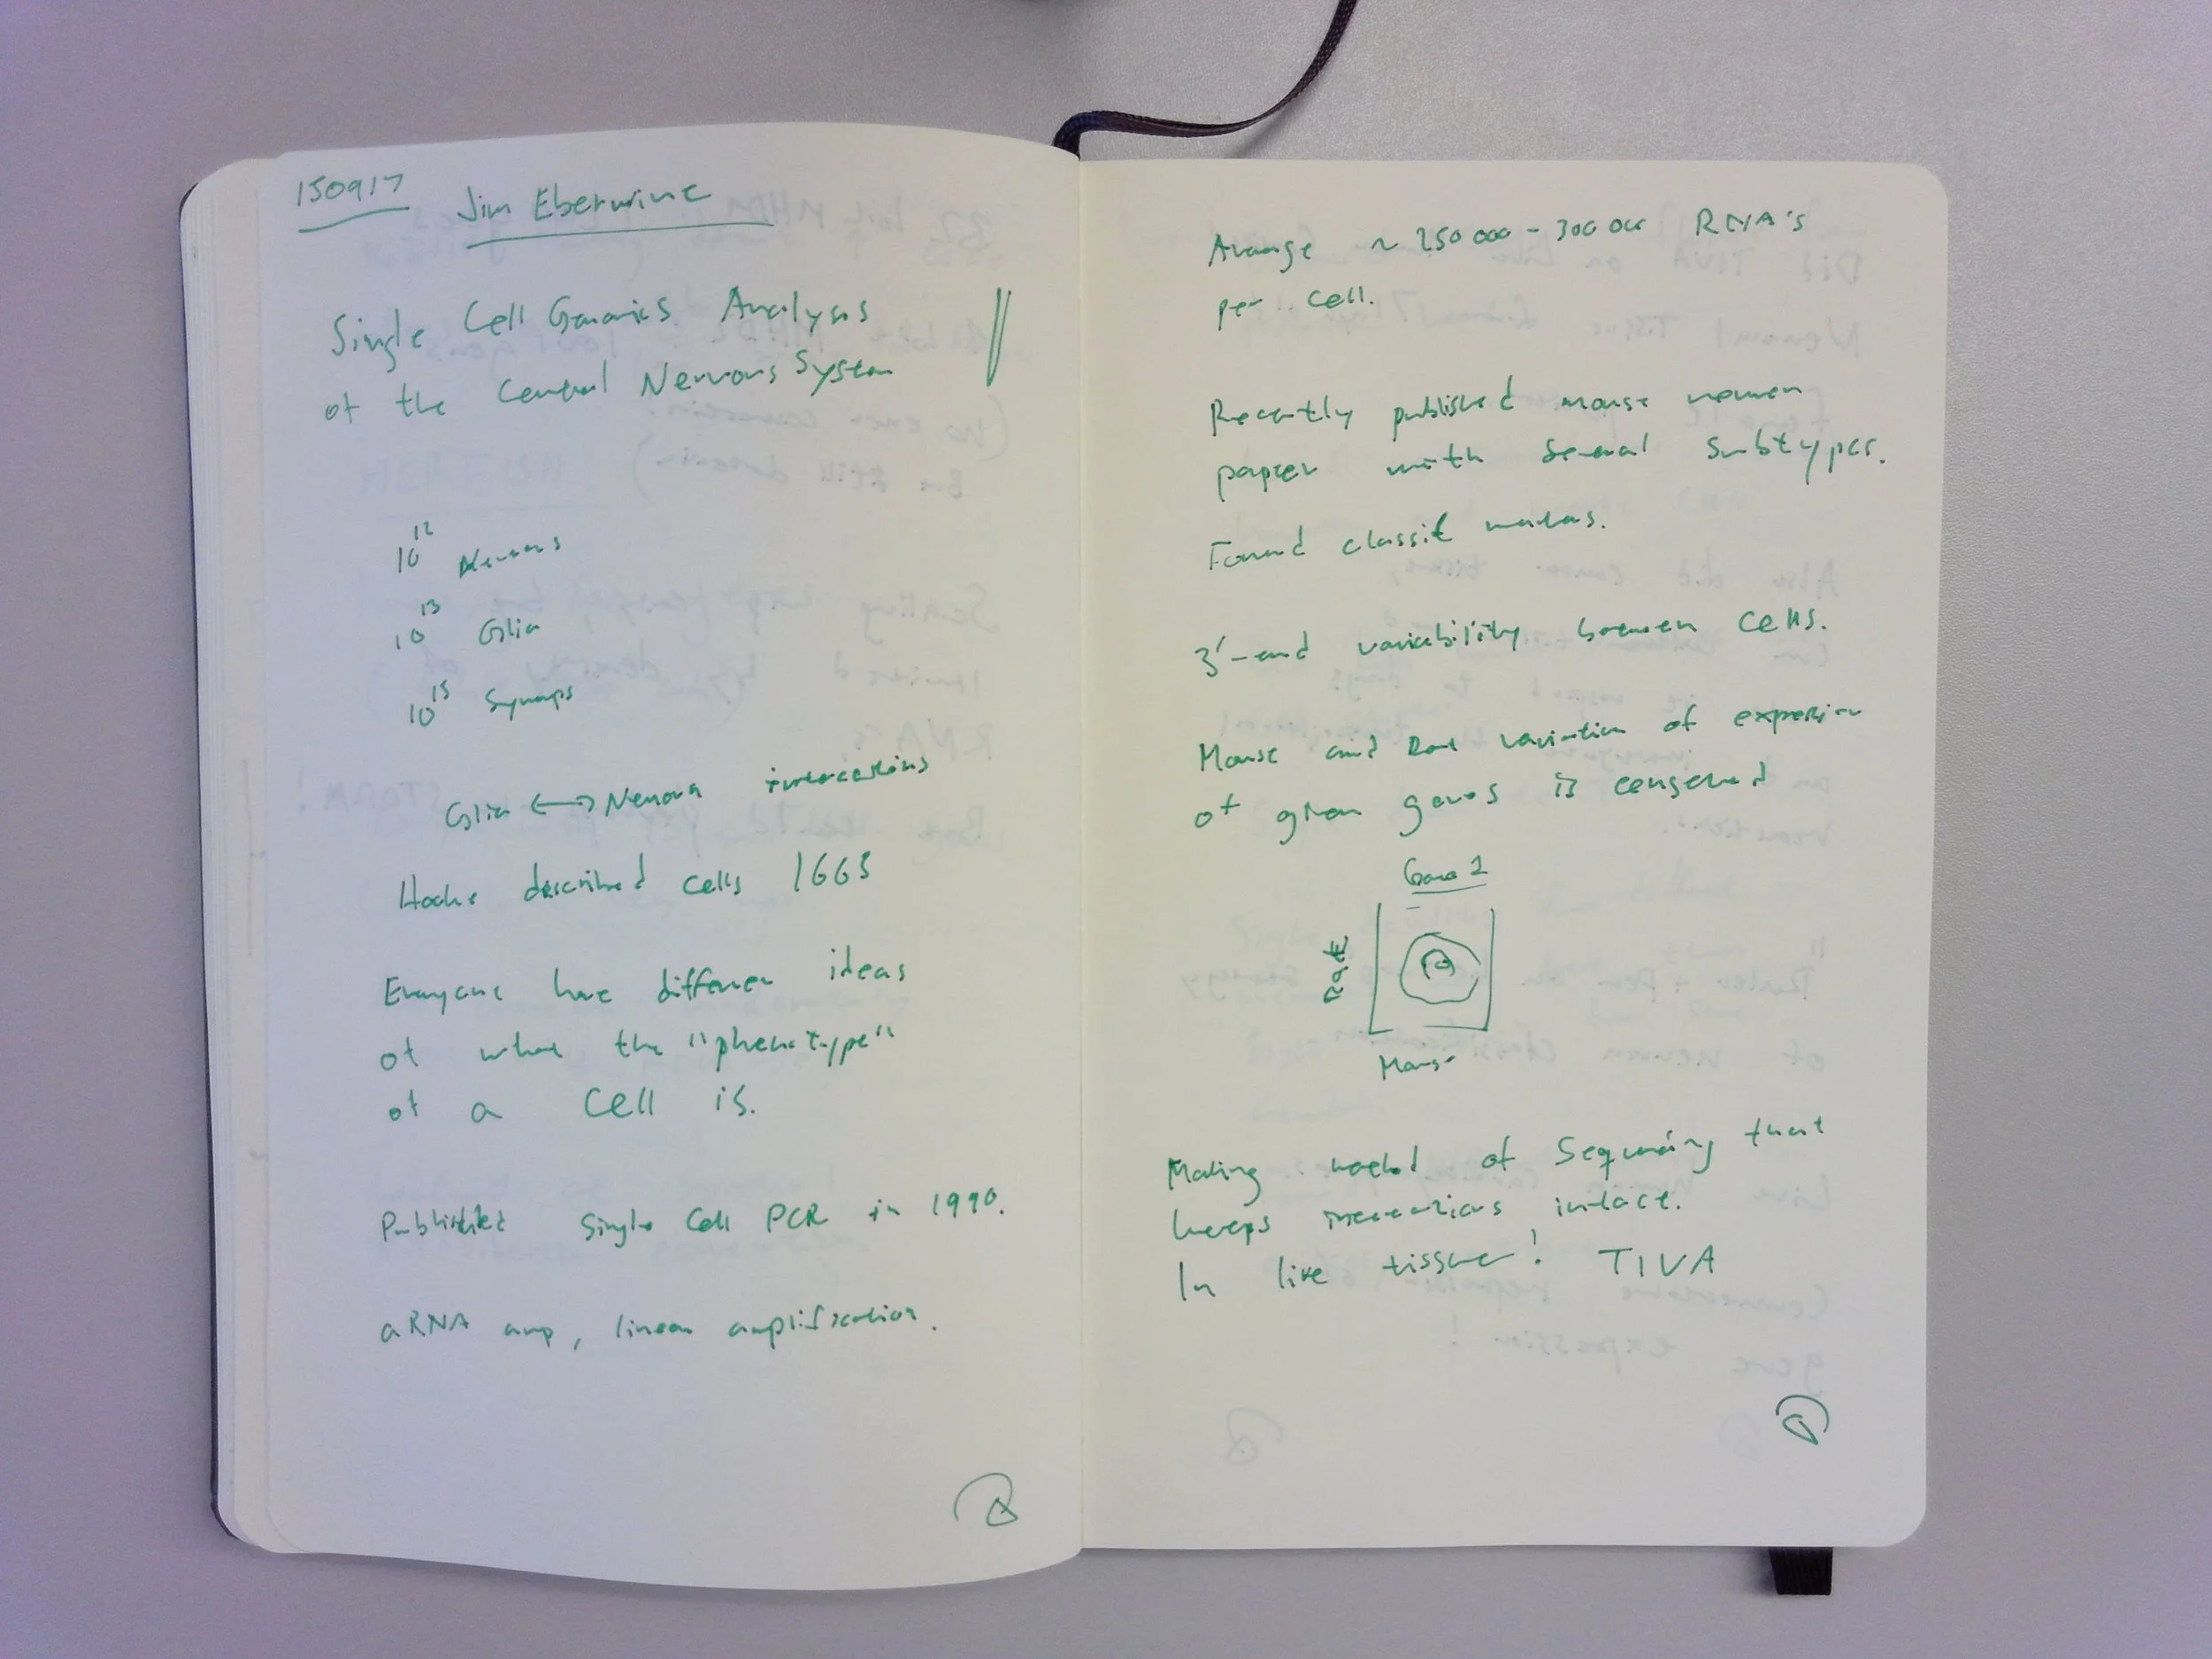 150917 Jim Eberwine
Single Cell Genomics Analysis
of the Central Nervous System
10^12 Neurons
10^13 Glia
10^15 Synaps
Glia <-> Neuron interactions
Hooke described cells 1663
Everyone have different ideas
of what the "phenotype"
of a cell is.
Published Single Cell PCR in 1990.
aRNA amp, linear amplification.
Average ~ 250 000 - 300 000 RNA's
per cell.
Recently published mouse neuron
paper with several subtypes.
Found classic markers.
3'-end variability between cells.
Mouse and Rat variation of expression
of given genes is conserved
Gene 1
Rat
Mouse
Making method of Sequencing that
keeps interactions intact.
In live tissue! TIVA